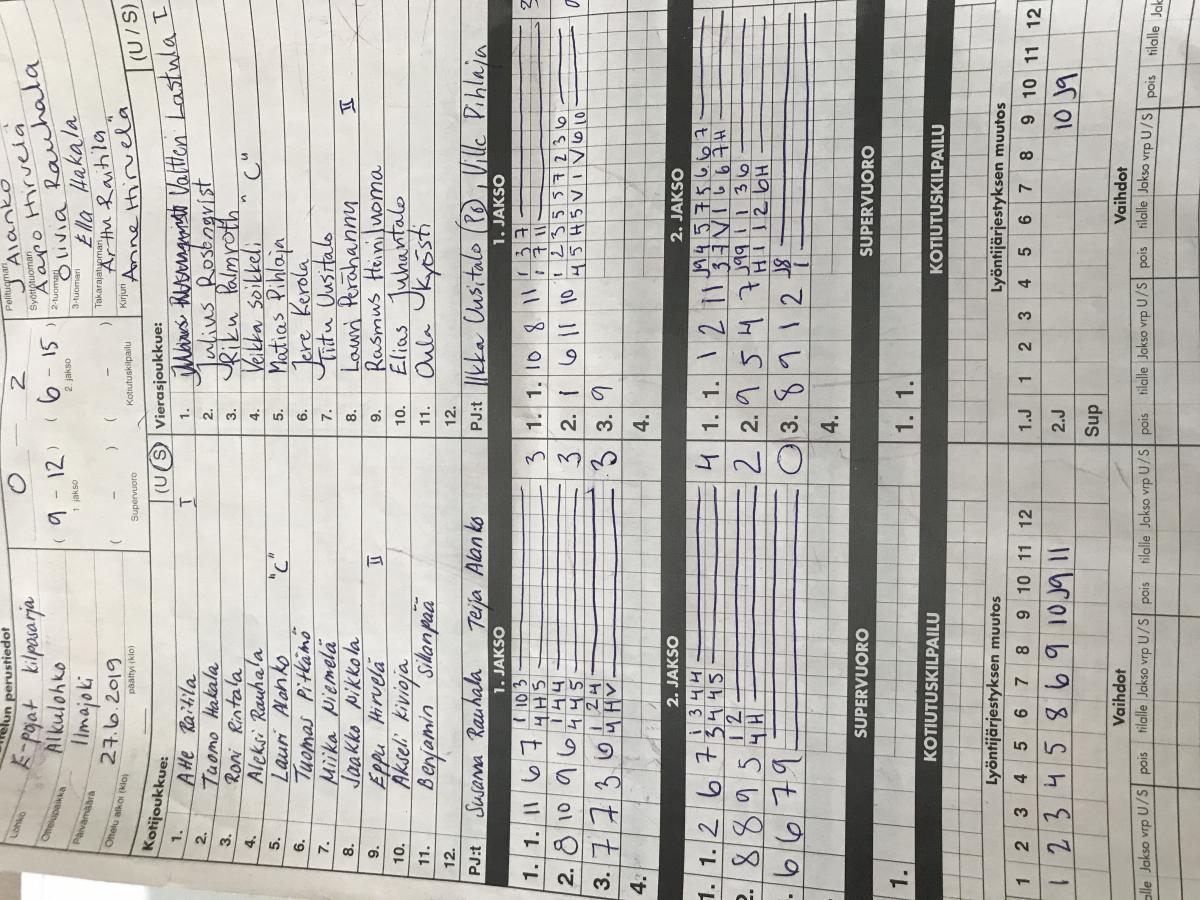 Ottelun perustiedot
Lohko E-pojat kilpasarja
Ottelupaikka Alkulohko
Päivämäärä Ilmajoki
Ottelu alkoi (klo) 27.6.2019 päättyi (klo)
0 — 2
( 9 - 12 ) ( 6 - 15 )
1. jakso 2. jakso
( - ) ( - )
Supervuoro Kotiutuskilpailu
Pelituomari J Alanko
Syöttötuomari Aapo Hirvelä
2-tuomari Olivia Rauhala
3-tuomari Ella Hakala
Takarajatuomari Arttu Raitila
Kirjuri Anne Hirvelä
Kotijoukkue: (U/S)
1. Atte Raitila I
2. Tuomo Hakala
3. Roni Rintala
4. Aleksi Rauhala
5. Lauri Alanko "C"
6. Tuomas Pitkämö
7. Miika Niemelä
8. Jaakko Nikkola
9. Eppu Hirvelä II
10. Akseli Kivioja
11. Benjamin Sillanpää
12.
PJ:t Susanna Rauhala Teija Alanko
Vierasjoukkue: (U/S)
1. Valtteri Lastula I
2. Julius Rosenqvist
3. Riku Palmroth
4. Veikka Soikkeli "C"
5. Matias Pihlaja
6. Jere Kerola
7. Tiitu Uusitalo
8. Lauri Perähannu II
9. Rasmus Heiniluoma
10. Elias Juhantalo
11. Onla Kyösti
12.
PJ:t Ilkka Uusitalo (PJ), Ville Pihlaja
1. JAKSO 1. JAKSO
1. 1. 11 6 7 1 10 3 3 1. 1. 10 8 11 1 3 7
4 H 5 1 7 11
2. 8 10 9 6 1 4 4 3 2. 1 6 11 10 1 2 3 5 5 5 7 2 3 6
4 4 5 4 5 H 5 V 1 V 6 10
3. 7 7 3 6 1 2 4 3 3. 9
4 H V
4. 4.
2. JAKSO 2. JAKSO
1. 1. 2 6 7 1 3 4 4 4 1. 1. 1 2 11 J9 4 5 7 5 6 6 7
3 4 4 5 3 7 V 1 6 6 7 H
2. 8 8 9 5 1 2 2 2. 9 5 4 7 J9 9 1 1 3 6
4 H H 1 1 2 6 H
6 6 7 9 0 3. 8 9 1 2 J8
1
4.
SUPERVUORO SUPERVUORO
1. 1. 1.
KOTIUTUSKILPAILU KOTIUTUSKILPAILU
Lyöntijärjestyksen muutos Lyöntijärjestyksen muutos
1 2 3 4 5 6 7 8 9 10 11 12 1.J 1 2 3 4 5 6 7 8 9 10 11 12
1 2 3 4 5 8 6 9 10 J9 11 2.J 10 J9
Sup
Vaihdot Vaihdot
tilalle Jakso vrp U/S pois tilalle Jakso vrp U/S pois tilalle Jakso vrp U/S pois tilalle Jakso vrp U/S pois tilalle Jakso vrp U/S pois tilalle Jak